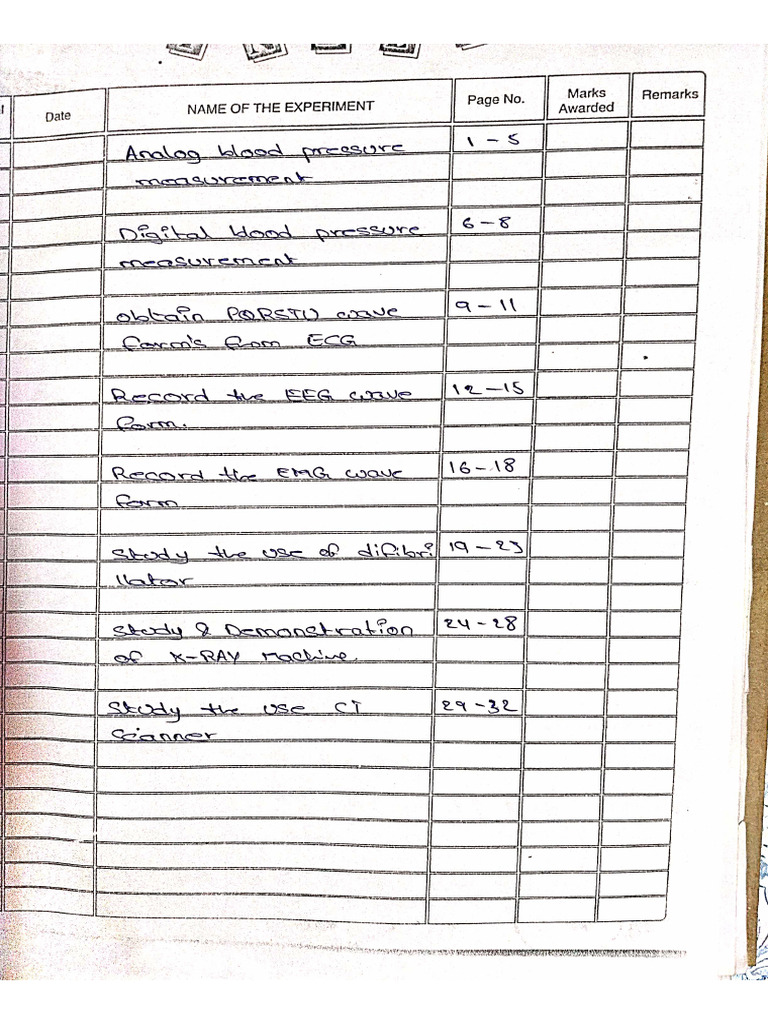 Date NAME OF THE EXPERIMENT Page No. Marks Awarded Remarks
Analog blood pressure 1 - 5
measurement
Digital blood pressure 6 - 8
measurement
Obtain PQRSTU wave 9 - 11
form's from ECG
Record the EEG wave 12 - 15
form.
Record the EMG wave 16 - 18
form
Study the use of difibri 19 - 23
llator
Study & Demonstration 24 - 28
of X-RAY Machine.
Study the use CT 29 - 32
Scanner